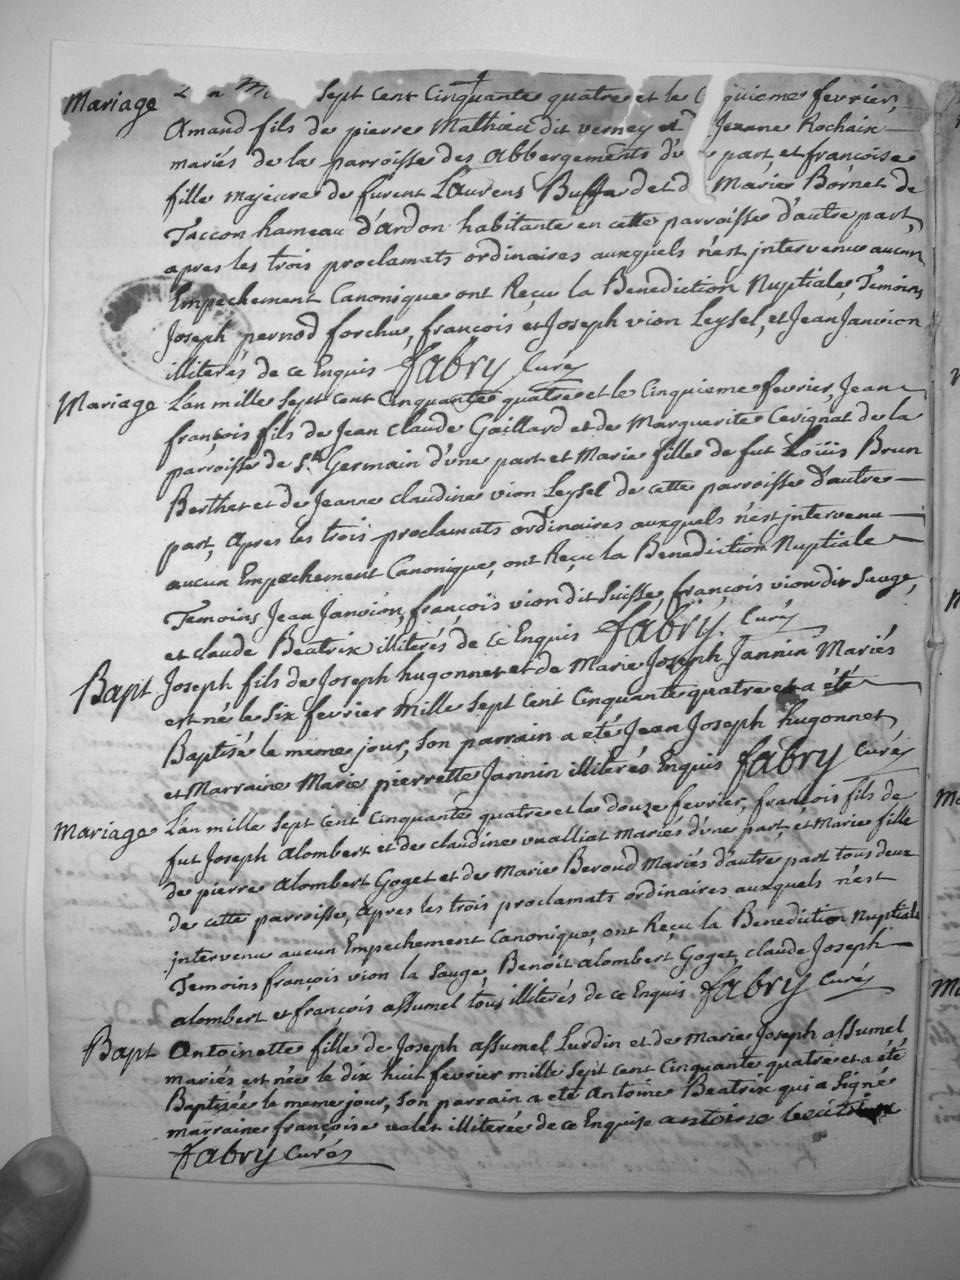 Mariage L'an M sept cent Cinquante quatre et le quieme fevrier,
Amand fils de pierre Mathieu dit verney et Jeanne Rochaix
mariés de la parroisse des Abbergements d'u part et francoise
fille majeure de furent Laurens Buffard et d Marie Bornet de
Taccon hameau d'Ardon habitante en cette parroisse d'autre part,
apres les trois proclamats ordinaires auxquels n'est intervenu aucun
Empechement Canonique ont Reçu la Benediction Nuptiale, Temoins
Joseph pernod forchu, françois et Joseph vion Leysel, et Jean Janvion
illiterés de ce Enquis fabry Curé
Mariage L'an mille sept cent Cinquante quatre et le Cinquieme fevrier, Jean
françois fils de Jean Claude Gaillard et de Marguerite Cerignat de la
parroisse de St. Germain d'une part et Marie fille de fut Loüis Brun
Berthet et de Jeanne claudine vion Leysel de cette parroisse d'autre
part, Apres les trois proclamats ordinaires auxquels n'est intervenu
aucun Empechement Canonique, ont Reçu la Benediction Nuptiale
Temoins Jean Janvion, françois vion dit Suisse, françois vion dit Sauge,
et claude Beatrix illiterés de ce Enquis fabry Curé
Bapt Joseph fils de Joseph hugonnet et de Marie Joseph Jannin Mariés
est né le six fevrier mille sept cent Cinquante quatre et a été
Baptisé le meme jour, son parrain a été Jean Joseph hugonnet
et Marraine Marie pierrette Jannin illiterés Enquis fabry Curé
Mariage L'an mille sept cent Cinquante quatre et le douze fevrier, françois fils de
fut Joseph Alombert et de claudine vualliat mariés d'une part, et Marie fille
de pierre Alombert Goget et de Marie Beroud Mariés d'autre part tous deux
de cette parroisse, Apres les trois proclamats ordinaires auxquels n'est
intervenu aucun Empechement Canonique, ont Reçu la Benediction Nuptiale
Temoins françois vion la Sauge, Benoit alombert Goget, claude Joseph
alombert et françois assumel tous illiterés de ce Enquis fabry Curé
Bapt Antoinette fille de Joseph assumel Lurdin et de Marie Joseph assumel
mariés est née le dix huit fevrier mille sept cent Cinquante quatre et a été
Baptisée le meme jour, son parrain a été Antoine Beatrix qui a signé
marraine françoise valet illiterée de ce Enquise antoine beatrix
fabry Curé